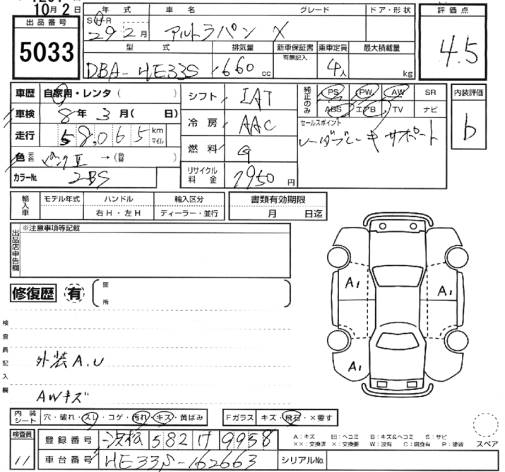 10月2日
出品番号
5033
年式 車名 グレード ドア・形状
29年2月 アルトラパン X
型式 排気量 新車保証書 乗車定員 最大積載量
有無記入
DBA-HE33S 660cc 4人 kg
評価点
4.5
車歴 自家用・レンタ( )
車検 8年3月( 日)
走行 58,065 km マイル
色 元色 ピンクⅡ →(替 )
カラーNo. ZBS
シフト IAT
冷房 AAC
燃料 G
リサイクル料金 7950円
純正のみ
PS PW AW SR
ABS エアB TV ナビ
セールスポイント
レーダブレーキサポート
内装評価
b
輸入車 モデル年式 ハンドル 輸入区分
年 右H・左H ディーラー・並行
書類有効期限
月 日迄
出品店申告欄
※注意事項等記載
修復歴 有
箇所
検査員記入欄
外装A.U
AWキズ
A1
A1
A1
内装シート 穴・破れ・スレ・コゲ・汚れ・キズ・黄ばみ
Fガラス キズ・飛石・×要す
検査員
11
登録番号 浜松 582 け 9958
車台番号 HE33S-162663
シリアルNo.
A:キズ E:ヘコミ B:キズ&ヘコミ S:サビ
XX:交換済 X:交換要 W:波有 C:腐食有 P:塗装
スペア